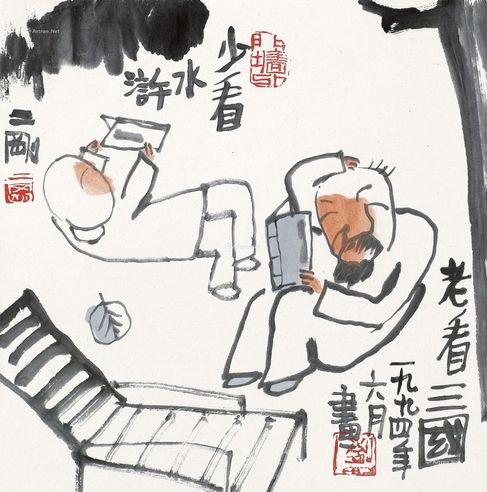 少看
水滸
老看三國
一九九四年
六月
畫
二剛
Artron.Net